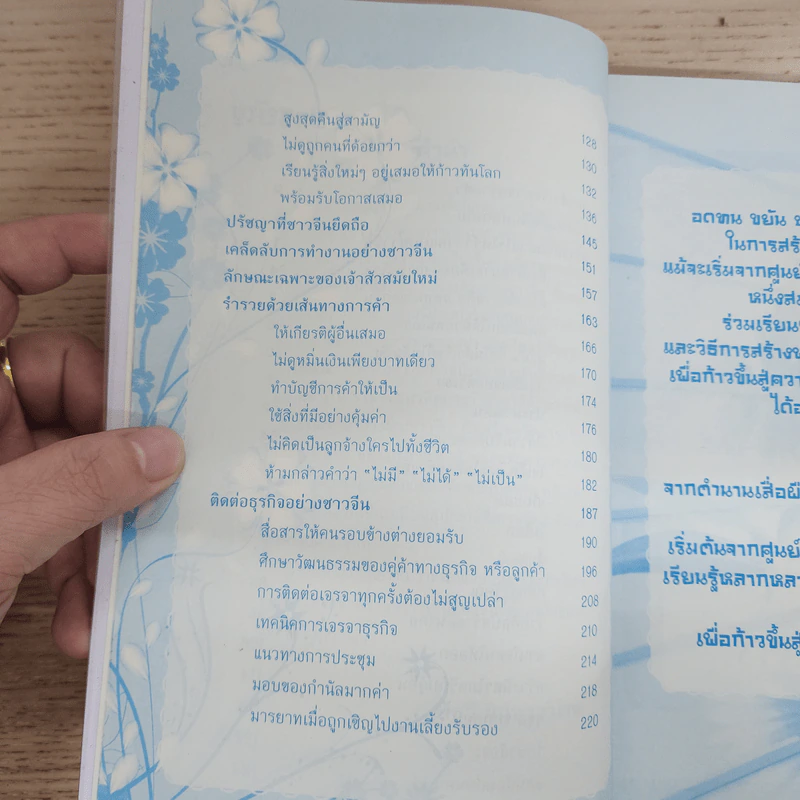 สูงสุดคืนสู่สามัญ 128
ไม่ดูถูกคนที่ด้อยกว่า 130
เรียนรู้สิ่งใหม่ๆ อยู่เสมอให้ก้าวทันโลก 132
พร้อมรับโอกาสเสมอ 136
ปรัชญาที่ชาวจีนยึดถือ 145
เคล็ดลับการทำงานอย่างชาวจีน 151
ลักษณะเฉพาะของเจ้าสัวสมัยใหม่ 157
ร่ำรวยด้วยเส้นทางการค้า 163
ให้เกียรติผู้อื่นเสมอ 166
ไม่ดูหมิ่นเงินเพียงบาทเดียว 170
ทำบัญชีการค้าให้เป็น 174
ใช้สิ่งที่มีอย่างคุ้มค่า 176
ไม่คิดเป็นลูกจ้างใครไปทั้งชีวิต 180
ห้ามกล่าวคำว่า "ไม่มี" "ไม่ได้" "ไม่เป็น" 182
ติดต่อธุรกิจอย่างชาวจีน 187
สื่อสารให้คนรอบข้างต่างยอมรับ 190
ศึกษาวัฒนธรรมของคู่ค้าทางธุรกิจ หรือลูกค้า 196
การติดต่อเจรจาทุกครั้งต้องไม่สูญเปล่า 208
เทคนิคการเจรจาธุรกิจ 210
แนวทางการประชุม 214
มอบของกำนัลมากค่า 218
มารยาทเมื่อถูกเชิญไปงานเลี้ยงรับรอง 220
อดทน ขยัน
ในการสร้
แม้จะเริ่มจากศูนย์
หนึ่งส
ร่วมเรียน
และวิธีการสร้าง
เพื่อก้าวขึ้นสู่ควา
ได้อ
จากตำนานเสื่อผื
เริ่มต้นจากศูนย์
เรียนรู้หลากหล
เพื่อก้าวขึ้นสู่